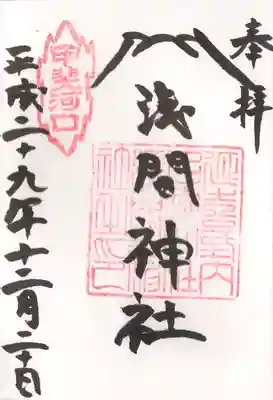 奉拝
浅間神社
平成二十九年十二月二十日